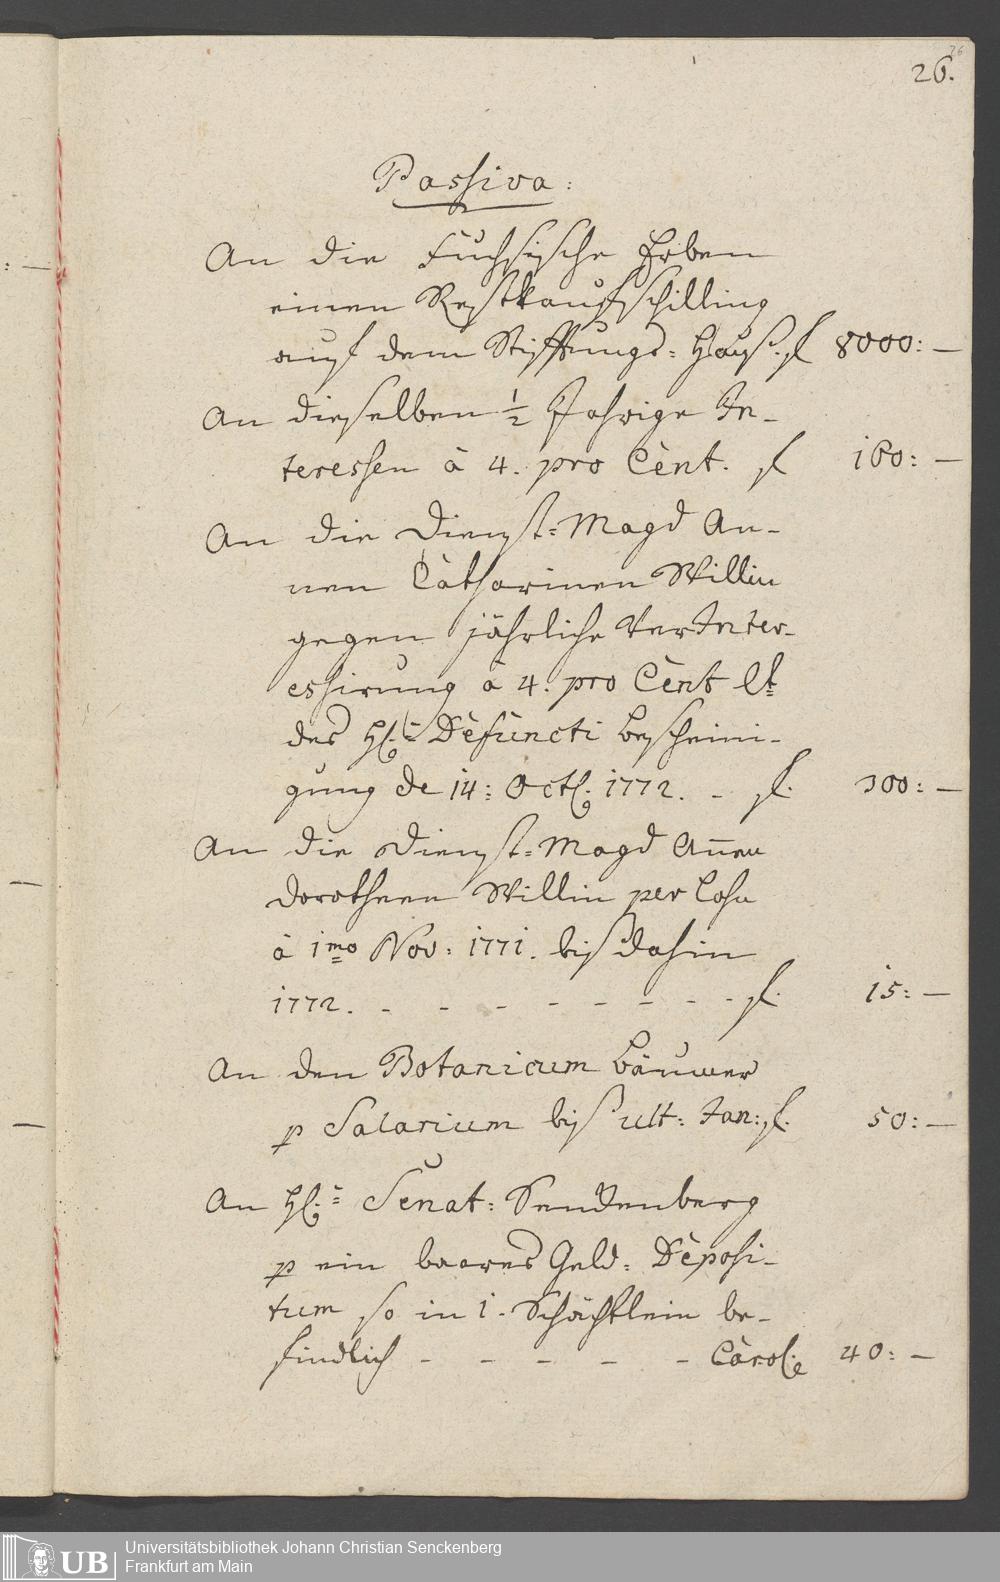 26
26.
Passiva:
An die Fuchsische Erben
einen Restkaufschilling
auf dem Stifftungs=Hauß. f 8000: —
An dieselben ½ Jahrige In-
teressen à 4. pro Cent. f 160: —
An die Dienst=Magd An-
nen Catharinen Willin
gegen jährliche VerInter-
essirung à 4. pro Cent lt
des H. Defuncti bescheini-
gung de 14: Oct. 1772. - f. 300: —
An die Dienst=Magd Añen
Dorotheen Willin per Lohn
à 1mo Nov: 1771. biß dahin
1772. - - - - - - - - f. 15: —
An den Botanicum Bäumer
p Salarium biß ult: Jan: f. 50: —
An H. Senat: Senckenberg
p ein baares Geld=Deposi-
tum so in 1. Schächtlein be-
findlich - - - - - Carol. 40: —
UB
Universitätsbibliothek Johann Christian Senckenberg
Frankfurt am Main